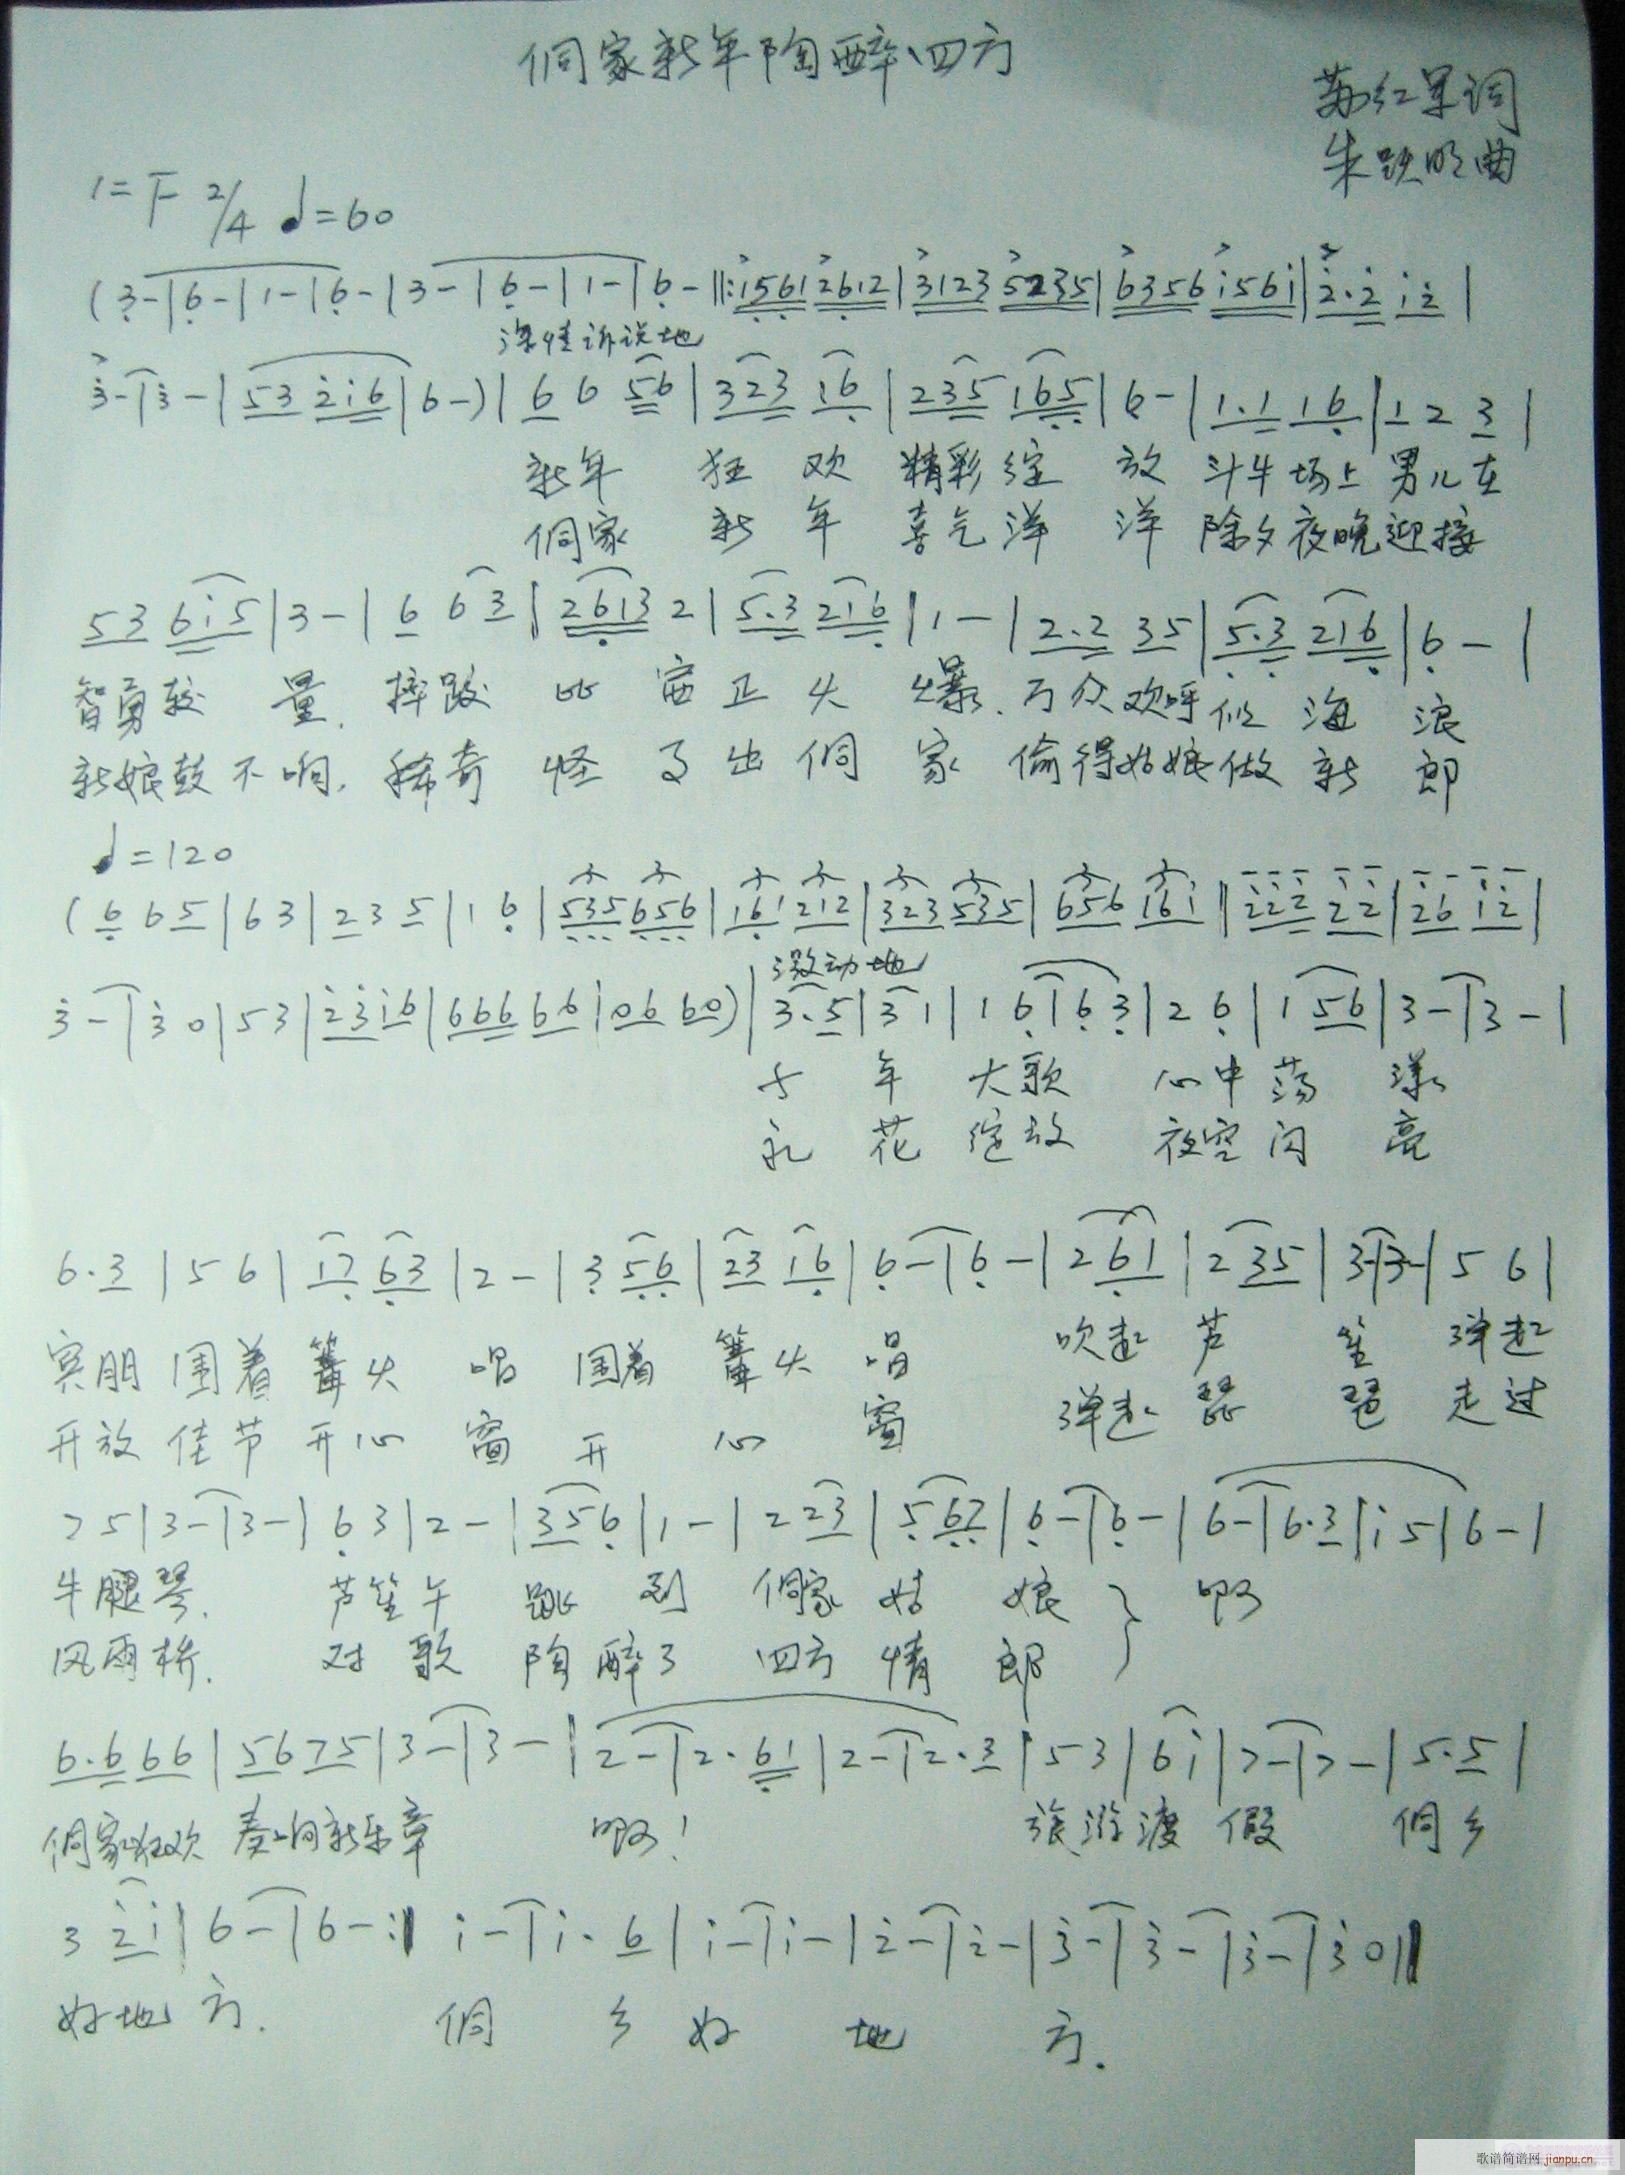 侗家新年陶醉四方
苏红军词
朱跃明曲
1=F 2/4 ♩=60
(3-|6-|1-|6-|3-|6-|1-|6-‖:1561 2612|3123 5235|6356 i56i|2.2 i2|
深情诉说地
3-|3-|53 2i6|6-)|6 6 56|323 16|235 165|6-|1.1 16|1 2 3|
新年 狂 欢 精彩绽 放 斗牛场上 男儿在
侗家 新 年 喜气洋 洋 除夕夜晚迎接
53 6i5|3-|6 6 3|2613 2|5.3 216|1-|2.2 35|5.3 216|6-|
智勇较 量. 摔跤 比 赛正火 爆. 万众欢呼似 海 浪
新娘鼓不响. 稀奇 怪 了出侗 家 偷得姑娘做 新 郎
♩=120
(6 6 5|6 3|2 3 5|1 6|535 656|161 212|323 535|656 i6i‖222 22|26 i2|
激动地
3-|3 0|53|23i6|666 66|06 60)|3.5|3 1|1 6|6 3|2 6|1 56|3-|3-|
千 年 大歌 心中 荡 漾
礼 花 绽放 夜空 闪 亮
6.3|5 6|17 63|2-|3 56|23 16|6-|6-|2 61|2 35|3-|3-|5 6|
宾朋 围着 篝火 唱 围着 篝火 唱 吹起 芦 笙 弹起
开放 佳节 开心 窗 开 心 窗 弹起 琵 琶 走过
7 5|3-|3-|6 3|2-|356|1-|2 23|5 67|6-|6-|6-|6.3|i 5|6-|
牛腿琴. 芦笙午 跳 到 侗家 姑 娘 } 啊
风雨桥. 对 歌 陶 醉了 四方 情 郎
6.6 66|56 75|3-|3-|2-|2.61|2-|2.3|5 3|6 i|7-|7-|5.5|
侗家狂欢 奏响新乐章 啊! 旅游渡 假 侗乡
3 2i|6-|6-:‖ i-|i.6|i-|i-|2-|2-|3-|3-|3-|3 0‖
好地 方. 侗 乡 好 地 方.
歌谱简谱网 jianpu.cn